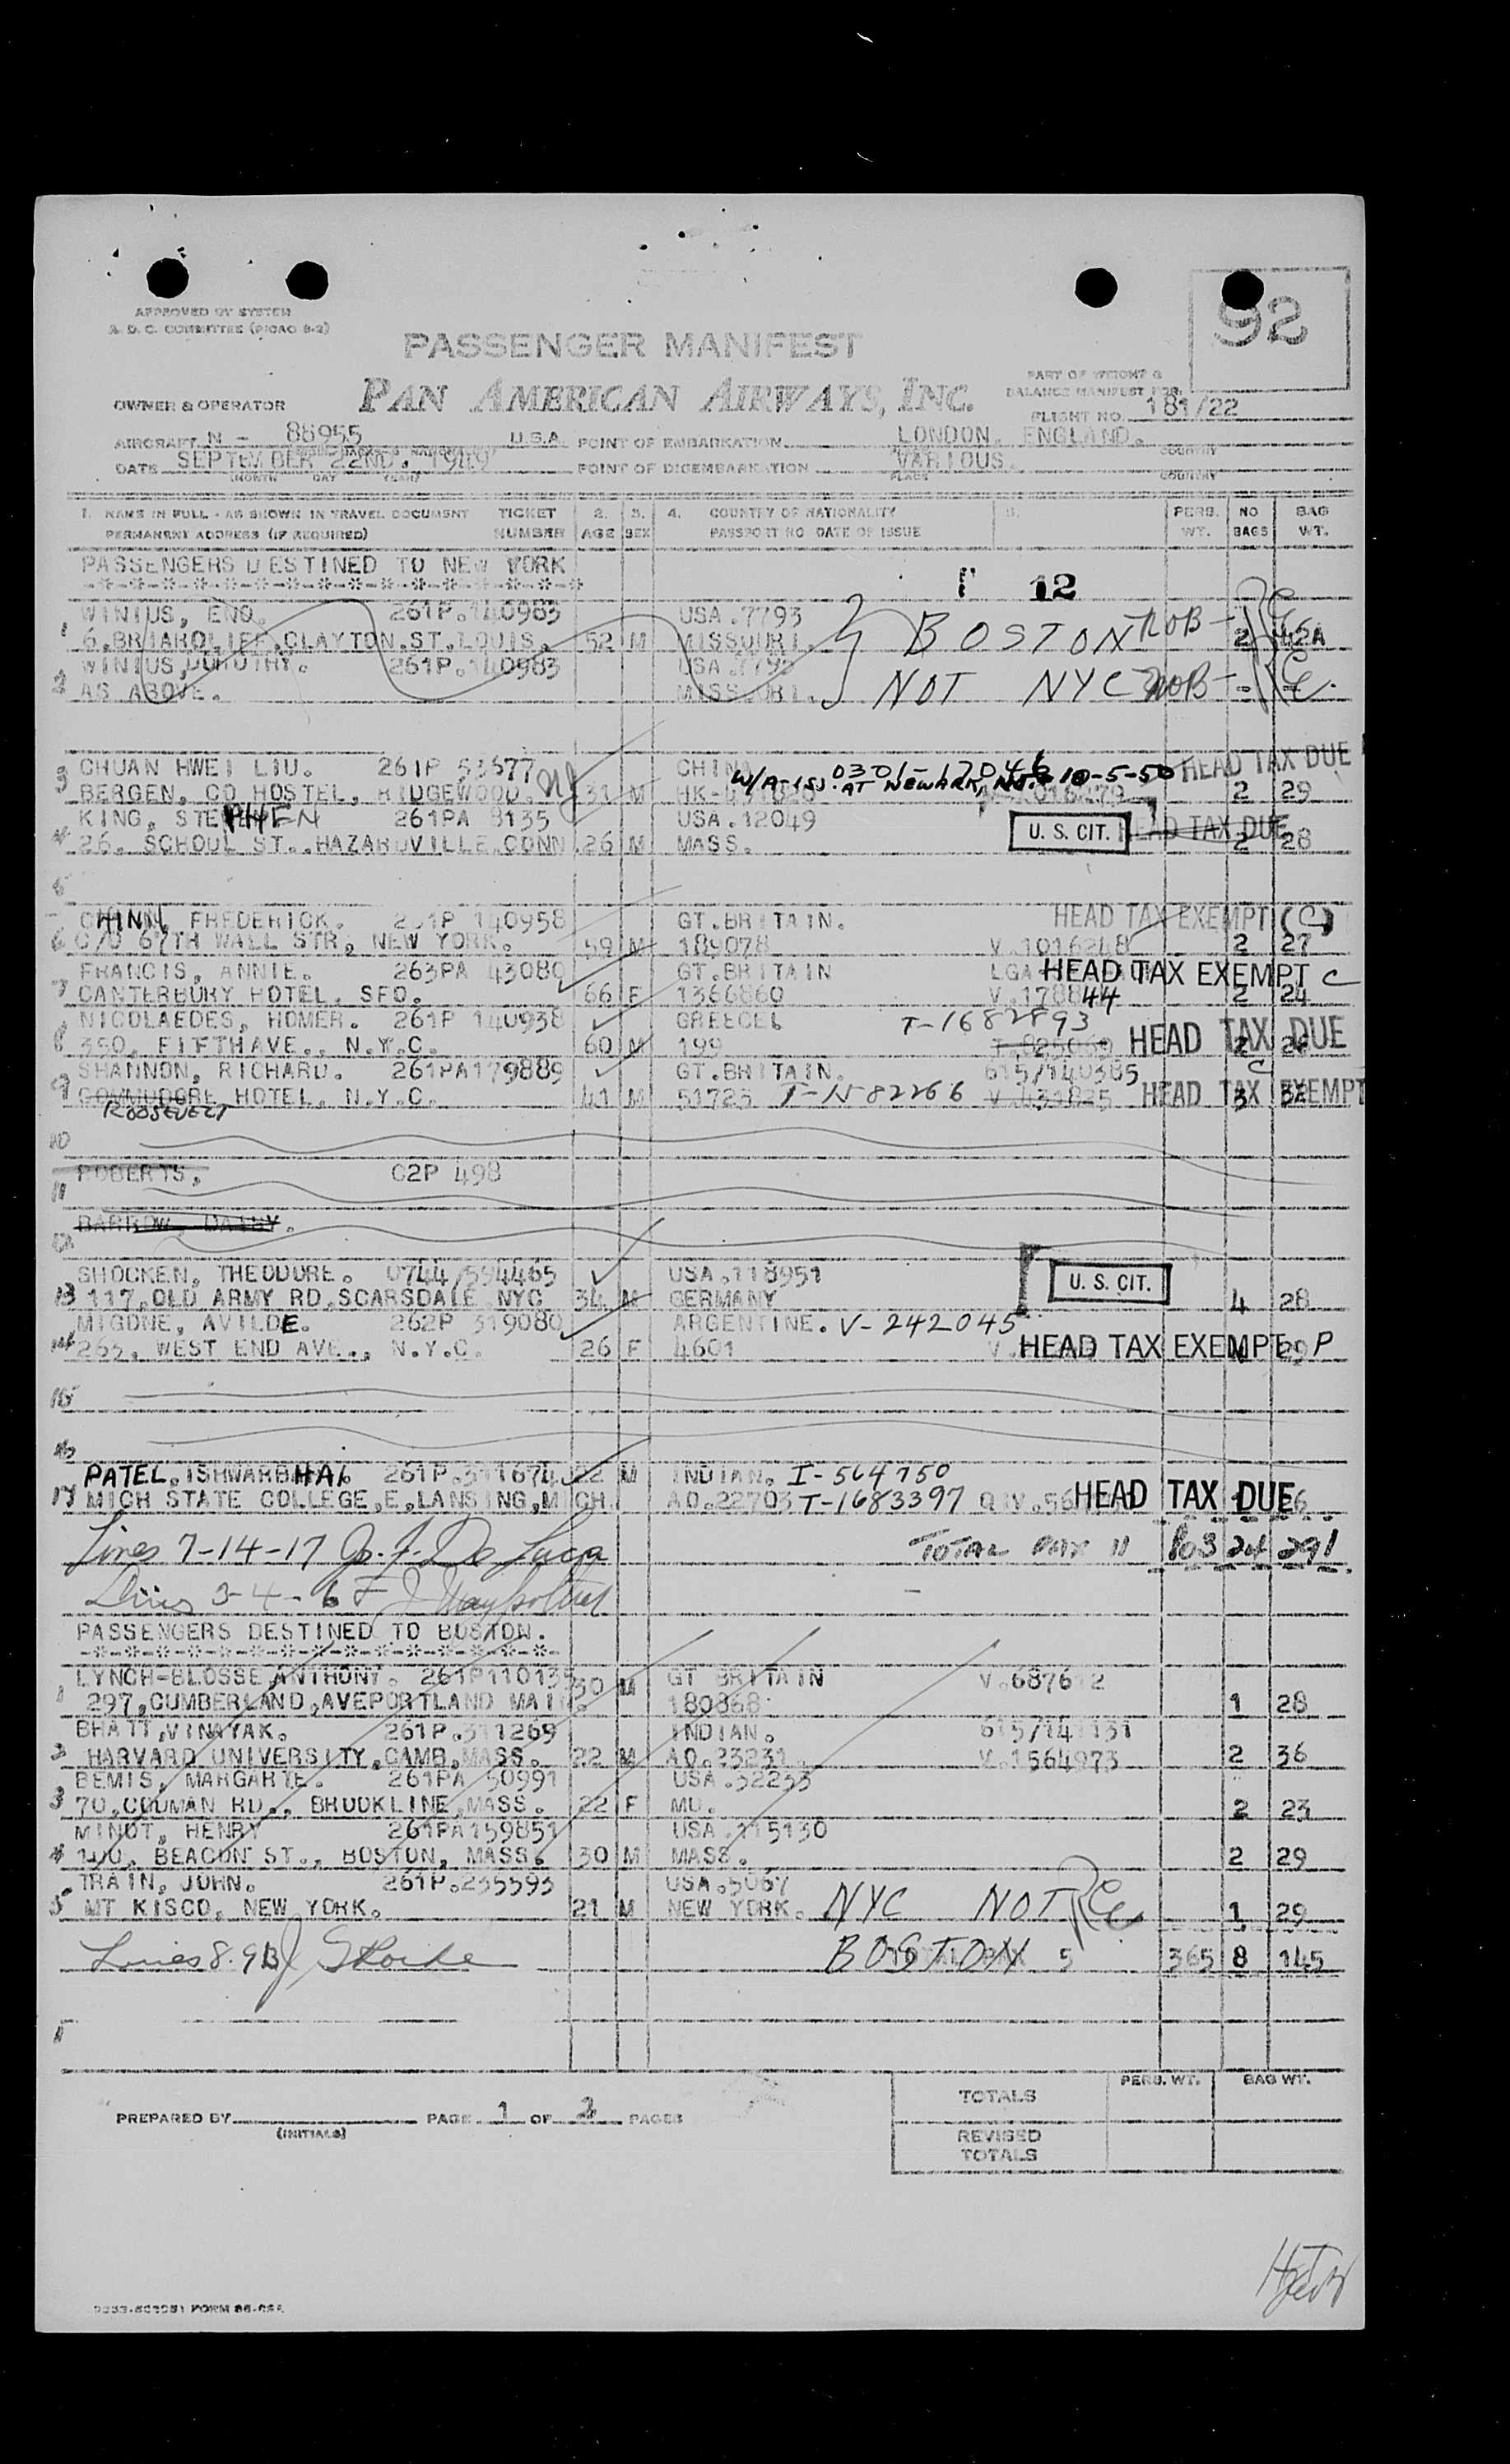 92
APPROVED BY SYSTEM
A. D. C. COMMITTEE (PICAO 8-2)
PASSENGER MANIFEST
PAN AMERICAN AIRWAYS, INC.
PART OF WEIGHT &
BALANCE MANIFEST FOR
OWNER & OPERATOR
FLIGHT NO. 181/22
AIRCRAFT N - 88955 U.S.A. POINT OF EMBARKATION LONDON, ENGLAND.
DATE SEPTEMBER 22ND. 1949 POINT OF DISEMBARKATION VARIOUS.
(MONTH DAY YEAR) PLACE COUNTRY
1. NAME IN FULL - AS SHOWN IN TRAVEL DOCUMENT TICKET 2. 3. 4. COUNTRY OF NATIONALITY 5. PERS. NO BAG
PERMANENT ADDRESS (IF REQUIRED) NUMBER AGE SEX PASSPORT NO DATE OF ISSUE WT. BAGS WT.
PASSENGERS DESTINED TO NEW YORK
-*-*-*-*-*-*-*-*-*-*-*-*-*-*-*-*
12
WINIUS, ENO. 261P.140983 USA.7793
1 6.BRIARCLIFF,CLAYTON.ST.LOUIS. 52 M MISSOURI. BOSTON 2 42A
WINIUS,DOROTHY. 261P.140983 USA.7793
2 AS ABOVE. MISSOURI. NOT NYC - -
CHUAN HWEI LIU. 261P 53677 CHINA 0301-17046 HEAD TAX DUE
3 BERGEN, CO HOSTEL, RIDGEWOOD. NJ 31 M W/A-ISS. AT NEWARK, NJ. 10-5-50 2 29
KING, STEPHEN 261PA 8135 USA.12049 U. S. CIT. HEAD TAX DUE
4 26. SCHOOL ST.,HAZARDVILLE CONN 26 M MASS. 2 28
5
CHINN, FREDERICK. 261P 140958 GT.BRITAIN. HEAD TAX EXEMPT (C)
6 C/O 67TH WALL STR, NEW YORK. 59 M 189078 V.1016248 2 27
FRANCIS, ANNIE. 263PA 43080 GT.BRITAIN HEAD TAX EXEMPT C
7 CANTERBURY HOTEL. SFO. 66 F 1366860 V.178844 2 24
NICOLAEDES, HOMER. 261P 140938 GREECE T-1682893
8 350, FIFTHAVE., N.Y.C. 60 M 199 HEAD TAX DUE 2
SHANNON, RICHARD. 261PA179889 GT.BRITAIN. 615/140385 C
9 COMMODORE HOTEL, N.Y.C. 41 M 51723 T-1582266 V.431825 HEAD TAX EXEMPT 3
ROOSEVELT
10
ROBERTS, C2P 498
11
BARROW, DAISY.
12
SHOCKEN, THEODORE. 0744/594465 USA.118951 U. S. CIT.
13 117,OLD ARMY RD,SCARSDALE NYC 34 M GERMANY 4 28
MIGONE, AVILDE. 262P 319080 ARGENTINE. V-242045
14 265, WEST END AVE., N.Y.C. 26 F 4601 HEAD TAX EXEMPT P
15
16
PATEL, ISHWARBHAI 261P.311674 22 M INDIAN. I-564750
17 MICH STATE COLLEGE,E,LANSING,MICH. AO.22703 T-1683397 HEAD TAX DUE
Lines 7-14-17 TOTAL PAX 11 803 24 291
Lines 3-4-6
PASSENGERS DESTINED TO BOSTON.
-*-*-*-*-*-*-*-*-*-*-*-*-*-*-*-
LYNCH-BLOSSE ANTHONY. 261P110135 GT BRITAIN V.687612
1 297,CUMBERLAND,AVEPORTLAND MAIN. 30 M 180868 1 28
BHATT,VINAYAK. 261P.311269 INDIAN. 615/141131
2 HARVARD UNIVERSITY,CAMB,MASS. 22 M AO.23231. V.1564973 2 36
BEMIS, MARGARTE. 261PA 50991 USA.32233
3 70,CODMAN RD., BROOKLINE,MASS. 22 F MO. 2 23
MINOT, HENRY 261PA159851 USA.115130
4 100, BEACON ST., BOSTON, MASS. 30 M MASS. 2 29
TRAIN, JOHN. 261P.235593 USA.5067
5 MT KISCO, NEW YORK. 21 M NEW YORK. NYC NOT 1 29
Lines 8.9.13 BOSTON 5 365 8 145
PREPARED BY (INITIALS) PAGE 1 OF 2 PAGES
PERS. WT. BAG WT.
TOTALS
REVISED
TOTALS